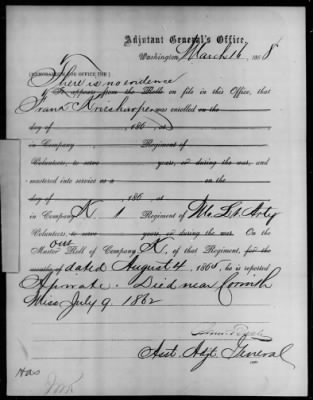 Adjutant General's Office,
Washington, March 16, 1868
[MEMORANDUM FOR OFFICE USE.]
There is no evidence
It appears from the Rolls on file in this Office, that
Frank was enrolled on the
day of , 186 , at
in Company , Regiment of
Volunteers, to serve years, or during the war, and
mustered into service as a on the
day of , 186 ,
in Company K, 1 Regiment of Mo. Lt. Arty
Volunteers, to serve years, or during the war. On the
out
Muster Roll of Company K, of that Regiment, for the
months of dated August 4, 1865, he is reported
A private. Died near Corinth
Miss. July 9 1862
Asst. Adjt. General